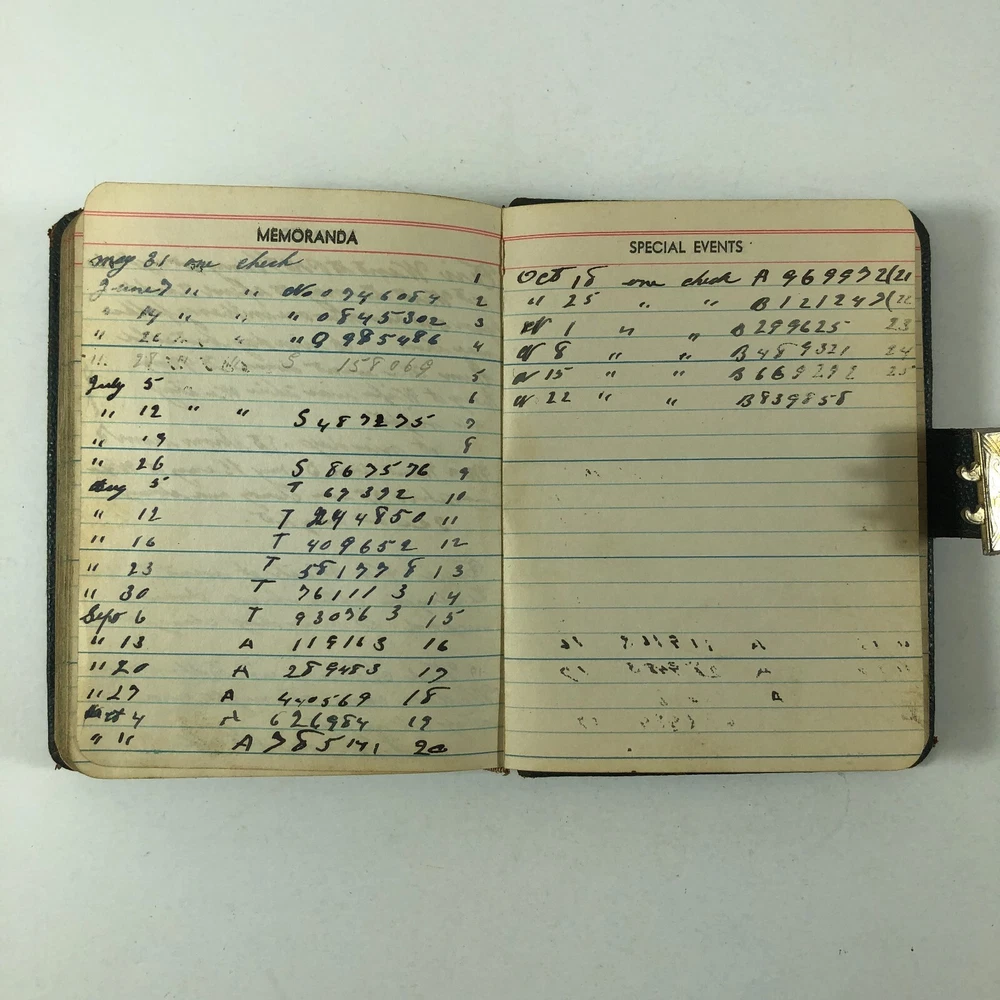 MEMORANDA
may 31 one check 1
June 7 " " No 0746084 2
" 14 " " " 0845302 3
" " " " 0 985486 4
" 28 S 158069 5
July 5 6
" 12 " " S 487275 7
" 19 8
" 26 S 867576 9
Aug 5 T 69392 10
" 12 T 244850 11
" 16 T 409652 12
" 23 T 581778 13
" 30 T 761113 14
Sept 6 T 930763 15
" 13 A 119163 16
" 20 A 289483 17
" 27 A 440569 18
Oct 4 A 626984 19
" 11 A 785141 20
SPECIAL EVENTS
Oct 18 one check A 969972 (21
" 25 " " B 121247 (22
N 1 " " B 299625 23
N 8 " " B 489321 24
N 15 " " B 669292 25
N 22 " " B 839858